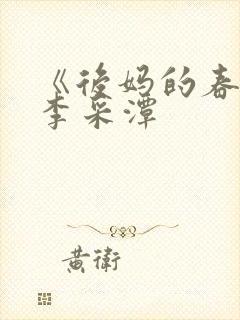 《後妈的春
李采潭
黄衛